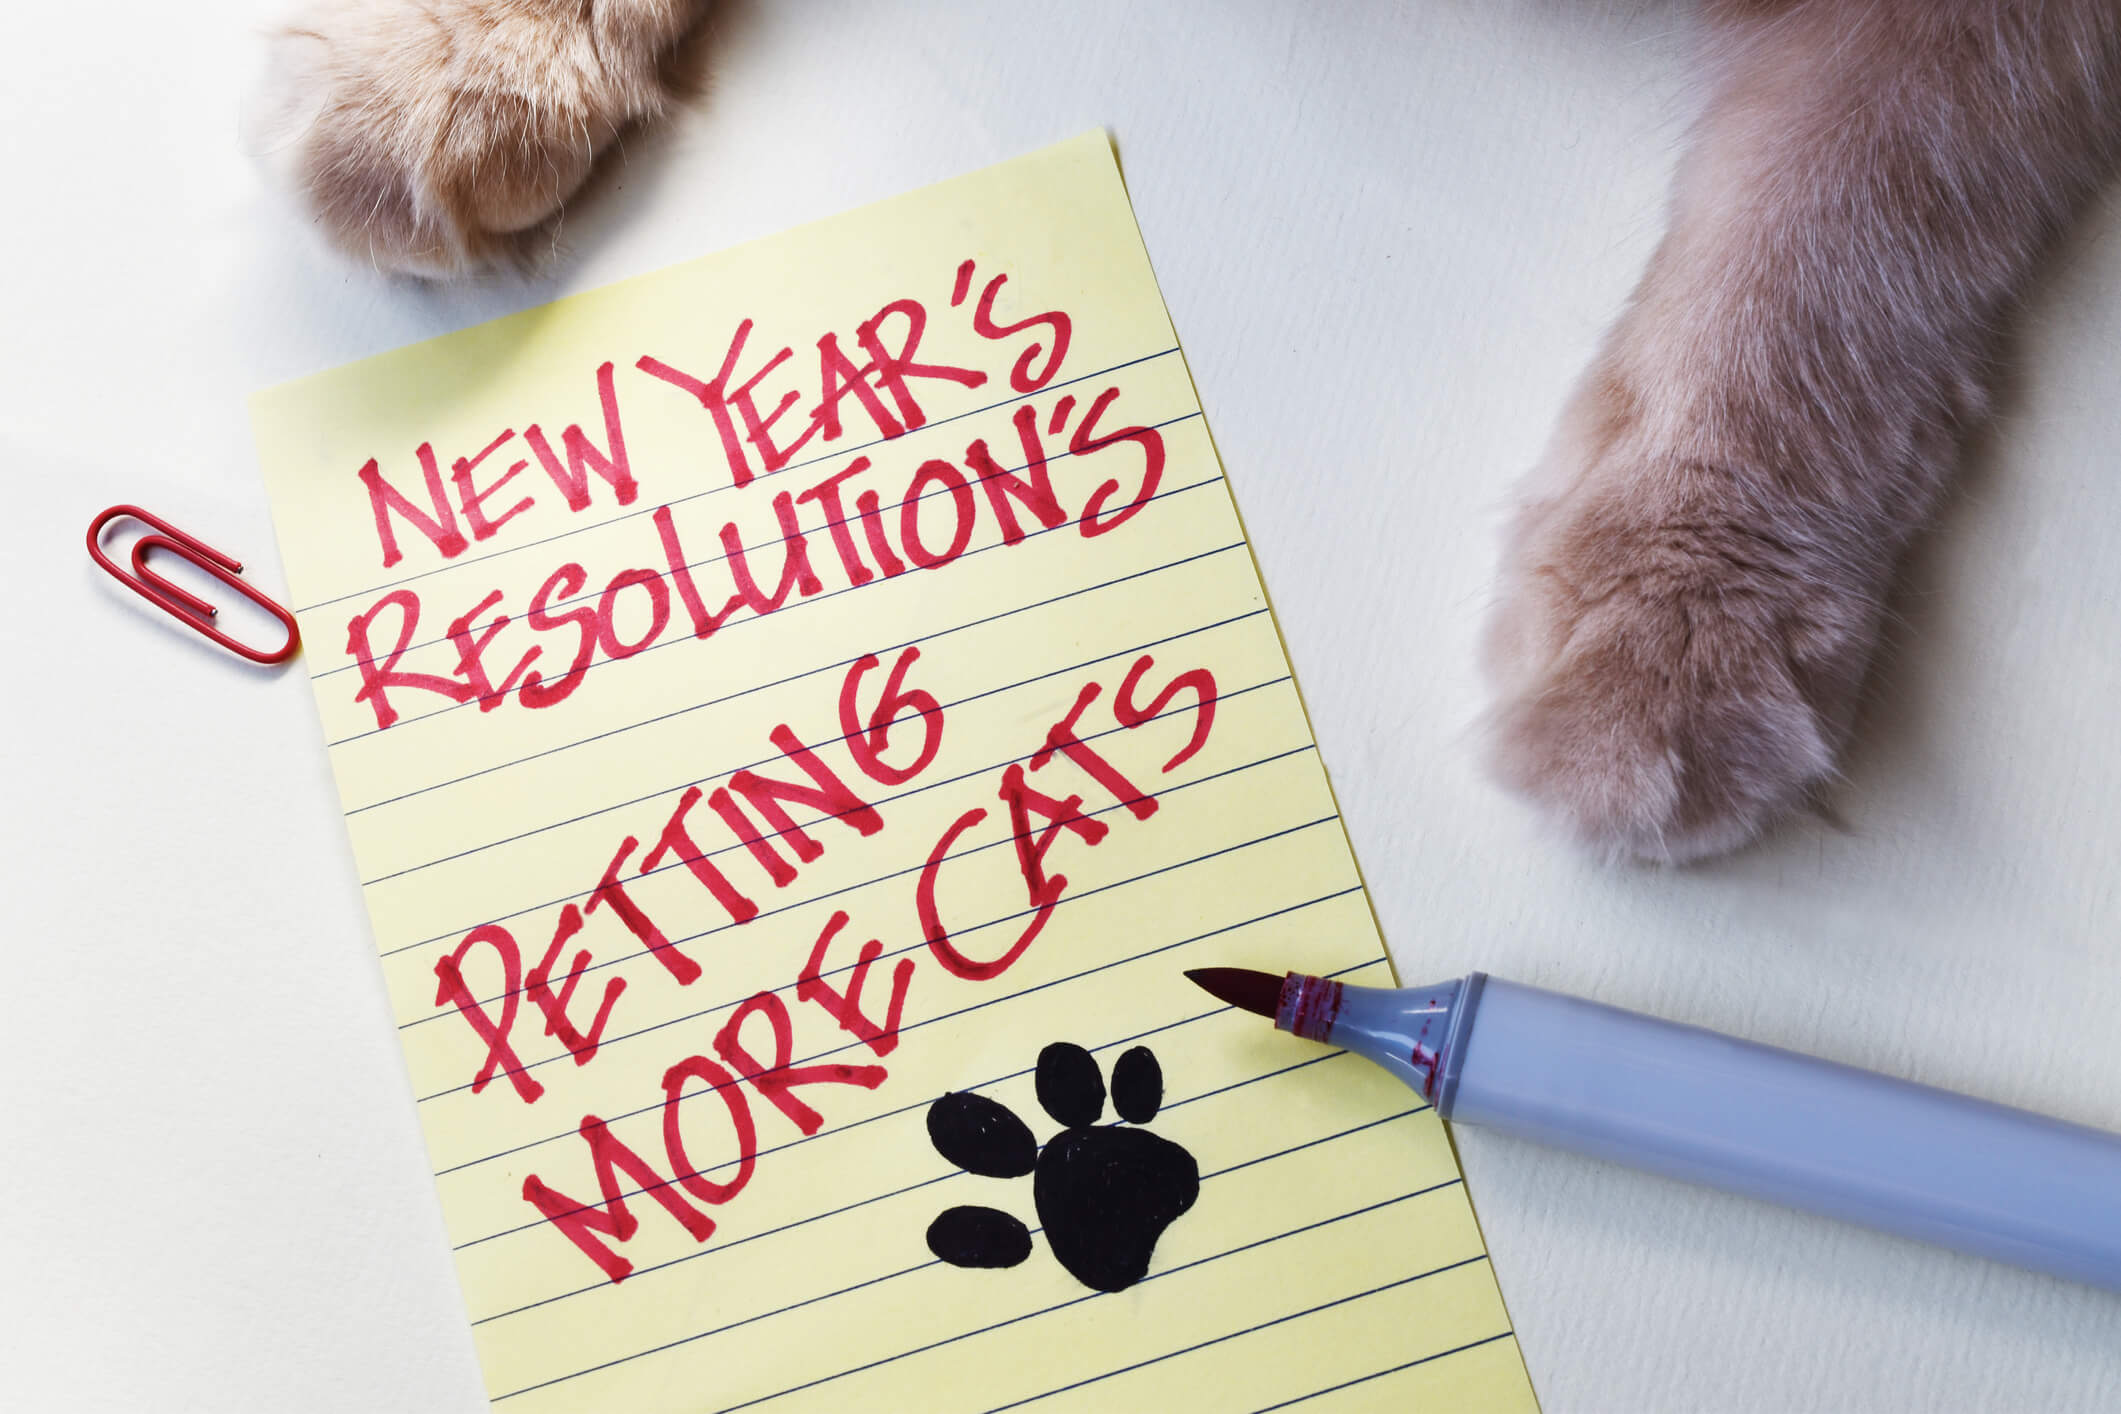 NEW YEAR'S
RESOLUTION'S
PETTING
MORE CATS